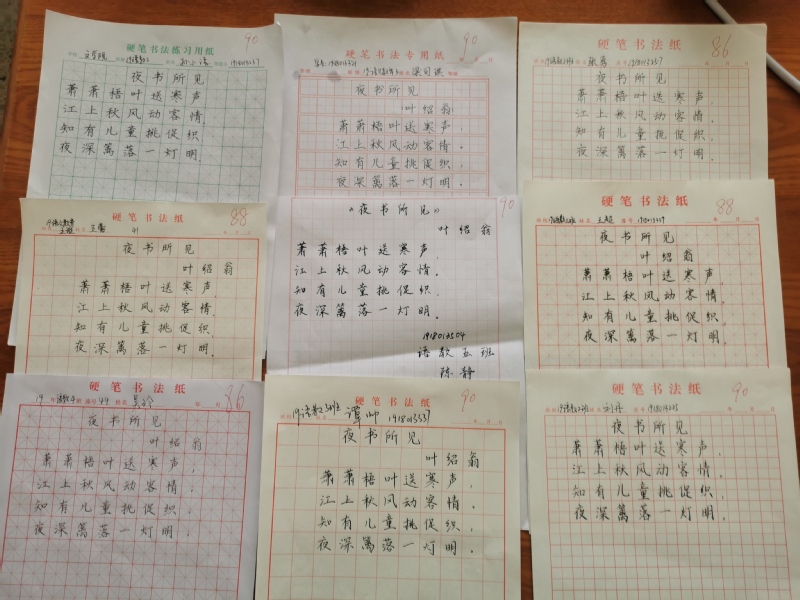 硬笔书法练习用纸
90
夜书所见
萧萧梧叶送寒声,
江上秋风动客情.
知有儿童挑促织
夜深篱落一灯明.
硬笔书法专用纸
90
夜书所见
叶绍翁
萧萧梧叶送寒声,
江上秋风动客情。
知有儿童挑促织,
夜深篱落一灯明。
硬笔书法纸
86
夜书所见
萧萧梧叶送寒声,
江上秋风动客情。
知有儿童挑促织,
夜深篱落一灯明.
硬笔书法纸
88
夜书所见
叶绍翁
萧萧梧叶送寒声
江上秋风动客情.
知有儿童挑促织.
夜深篱落一灯明.
90
《夜书所见》
叶绍翁
萧萧梧叶送寒声,
江上秋风动客情。
知有儿童挑促织,
夜深篱落一灯明。
1918013504
语教五班
陈静
硬笔书法纸
88
夜书所见
叶绍翁
萧萧梧叶送寒声,
江上秋风动客情.
知有儿童挑促织,
夜深篱落一灯明.
硬笔书法纸
86
夜书所见
叶绍翁
萧萧梧叶送寒声,
江上秋风动客情;
知有儿童挑促织,
夜深篱落一灯明.
谭帅
90
夜书所见
叶绍翁
萧萧梧叶送寒声,
江上秋风动客情,
知有儿童挑促织,
夜深篱落一灯明.
硬笔书法纸
90
夜书所见
萧萧梧叶送寒声,
江上秋风动客情.
知有儿童挑促织,
夜深篱落一灯明.